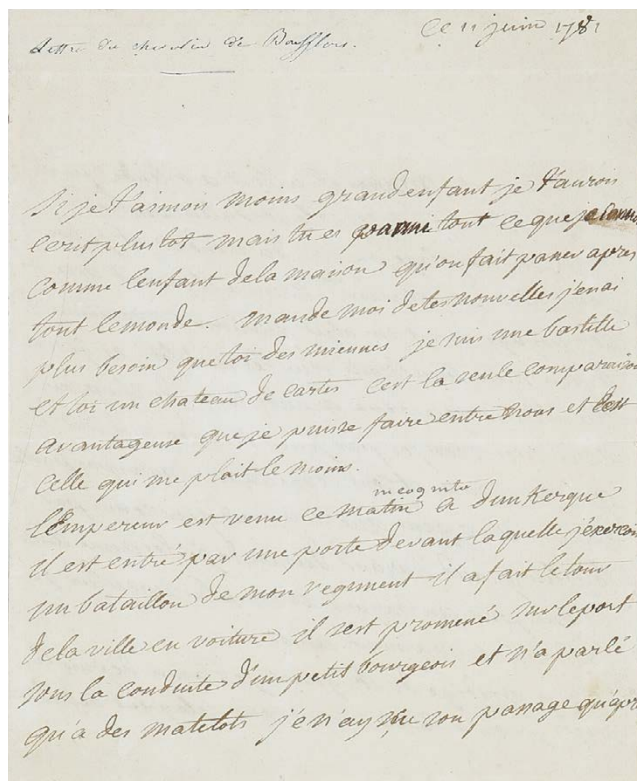 Lettre du chevalier de Boufflers.
Ce 11 juin 1781
Si je t'aimois moins grand enfant je t'aurois
ecrit plustot mais tu es parmi tout ce que je connois
comme l'enfant de la maison qu'on fait passer apres
tout le monde. mande moi de tes nouvelles j'en ai
plus besoin que toi des miennes je suis une bastille
et toi un chateau de cartes c'est la seule comparaison
avantageuse que je puisse faire entre nous et c'est
celle qui me plait le moins.
incognito
l'Empereur est venu ce matin a dunkerque
il est entré par une porte devant laquelle j'exercois
un bataillon de mon regiment il a fait le tour
de la ville en voiture il s'est promené sur le port
sous la conduite d'un petit bourgeois et n'a parlé
qu'a des matelots je n'ay su son passage qu'apr